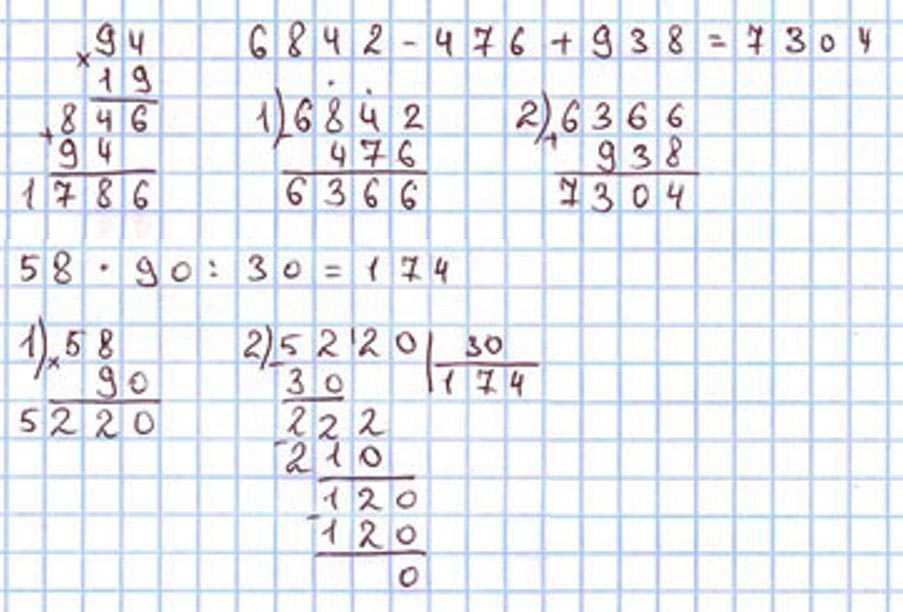 94
× 19
+ 846
94
1786
6842 - 476 + 938 = 7304
1) - 6842
476
6366
2) + 6366
938
7304
58 · 90 : 30 = 174
1) × 58
90
5220
2) - 5220 | 30
30 174
222
- 210
120
- 120
0